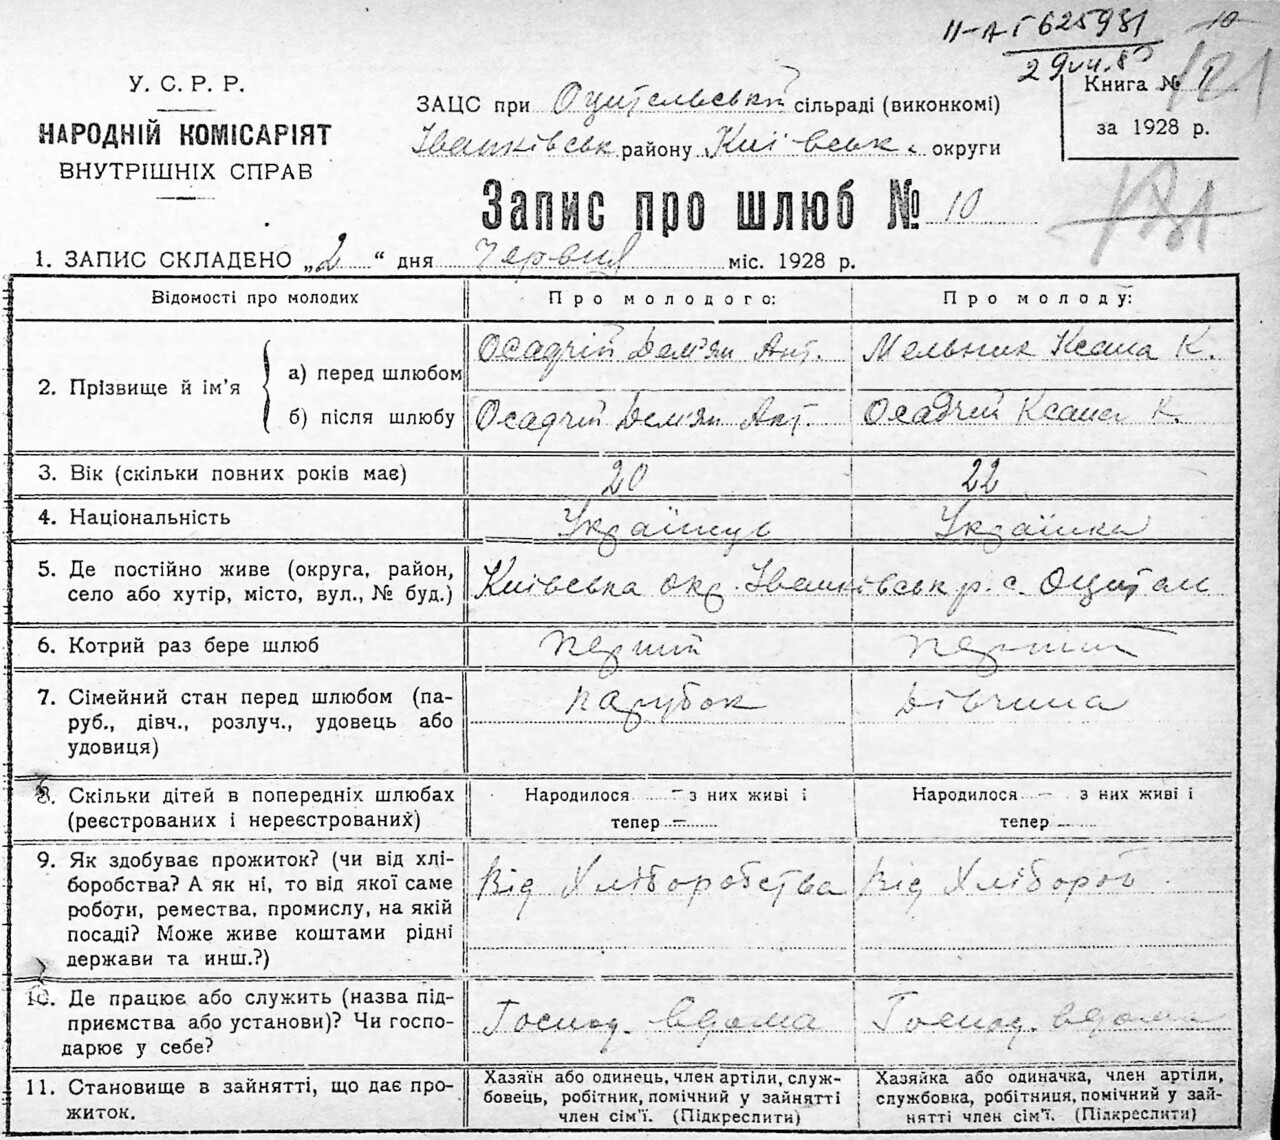 II-АГ 625981
10
29
121
У. С. Р. Р.
НАРОДНІЙ КОМІСАРІЯТ
ВНУТРІШНІХ СПРАВ
ЗАЦС при Оцительській сільраді (виконкомі)
Іванківськ району Київськ. округи
Книга № 1
за 1928 р.
Запис про шлюб № 10
121
1. ЗАПИС СКЛАДЕНО „2“ дня Червня міс. 1928 р.
Відомості про молодих
Про молодого:
Про молоду:
2. Прізвище й ім'я
а) перед шлюбом
Осадчій Дем'ян Ант.
Мельник Ксана К.
б) після шлюбу
Осадчій Дем'ян Ант.
Осадчій Ксана К.
3. Вік (скільки повних років має)
20
22
4. Національність
Українець
Українка
5. Де постійно живе (округа, район,
село або хутір, місто, вул., № буд.)
Київська окр. Іванківськ р. с. Оцитель
6. Котрий раз бере шлюб
перший
перший
7. Сімейний стан перед шлюбом (па-
руб., дівч., розлуч., удовець або
удовиця)
парубок
дівчина
8. Скільки дітей в попередніх шлюбах
(реєстрованих і нереєстрованих)
Народилося – з них живі і
тепер –
Народилося – з них живі і
тепер –
9. Як здобуває прожиток? (чи від хлі-
боробства? А як ні, то від якої саме
роботи, ремества, промислу, на якій
посаді? Може живе коштами рідні
держави та инш.?)
Від Хліборобства
Від Хлібороб
10. Де працює або служить (назва під-
приємства або установи)? Чи госпо-
дарює у себе?
Господ. вдома
Господ. вдома
11. Становище в зайнятті, що дає про-
житок.
Хазяїн або одинець, член артілі, служ-
бовець, робітник, помічний у зайнятті
член сім'ї. (Підкреслити)
Хазяйка або одиначка, член артілі,
службовка, робітниця, помічний у зай-
нятті член сім'ї. (Підкреслити)